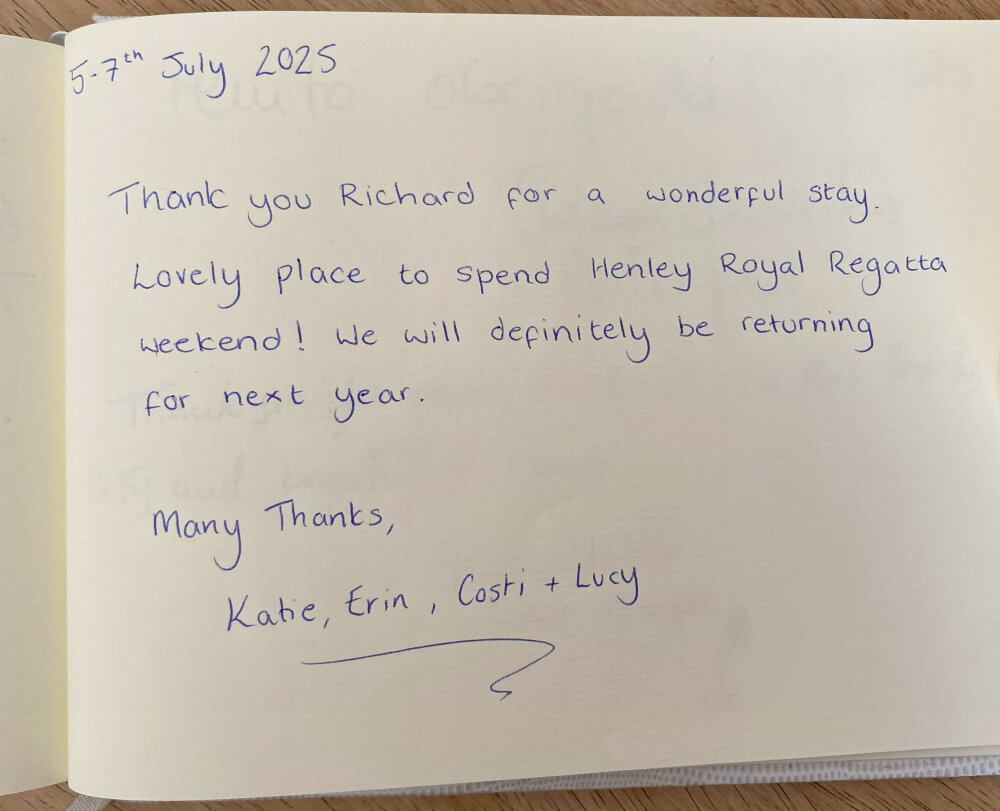 5-7th July 2025
Thank you Richard for a wonderful stay.
Lovely place to spend Henley Royal Regatta
weekend! We will definitely be returning
for next year.
Many Thanks,
Katie, Erin, Costi + Lucy